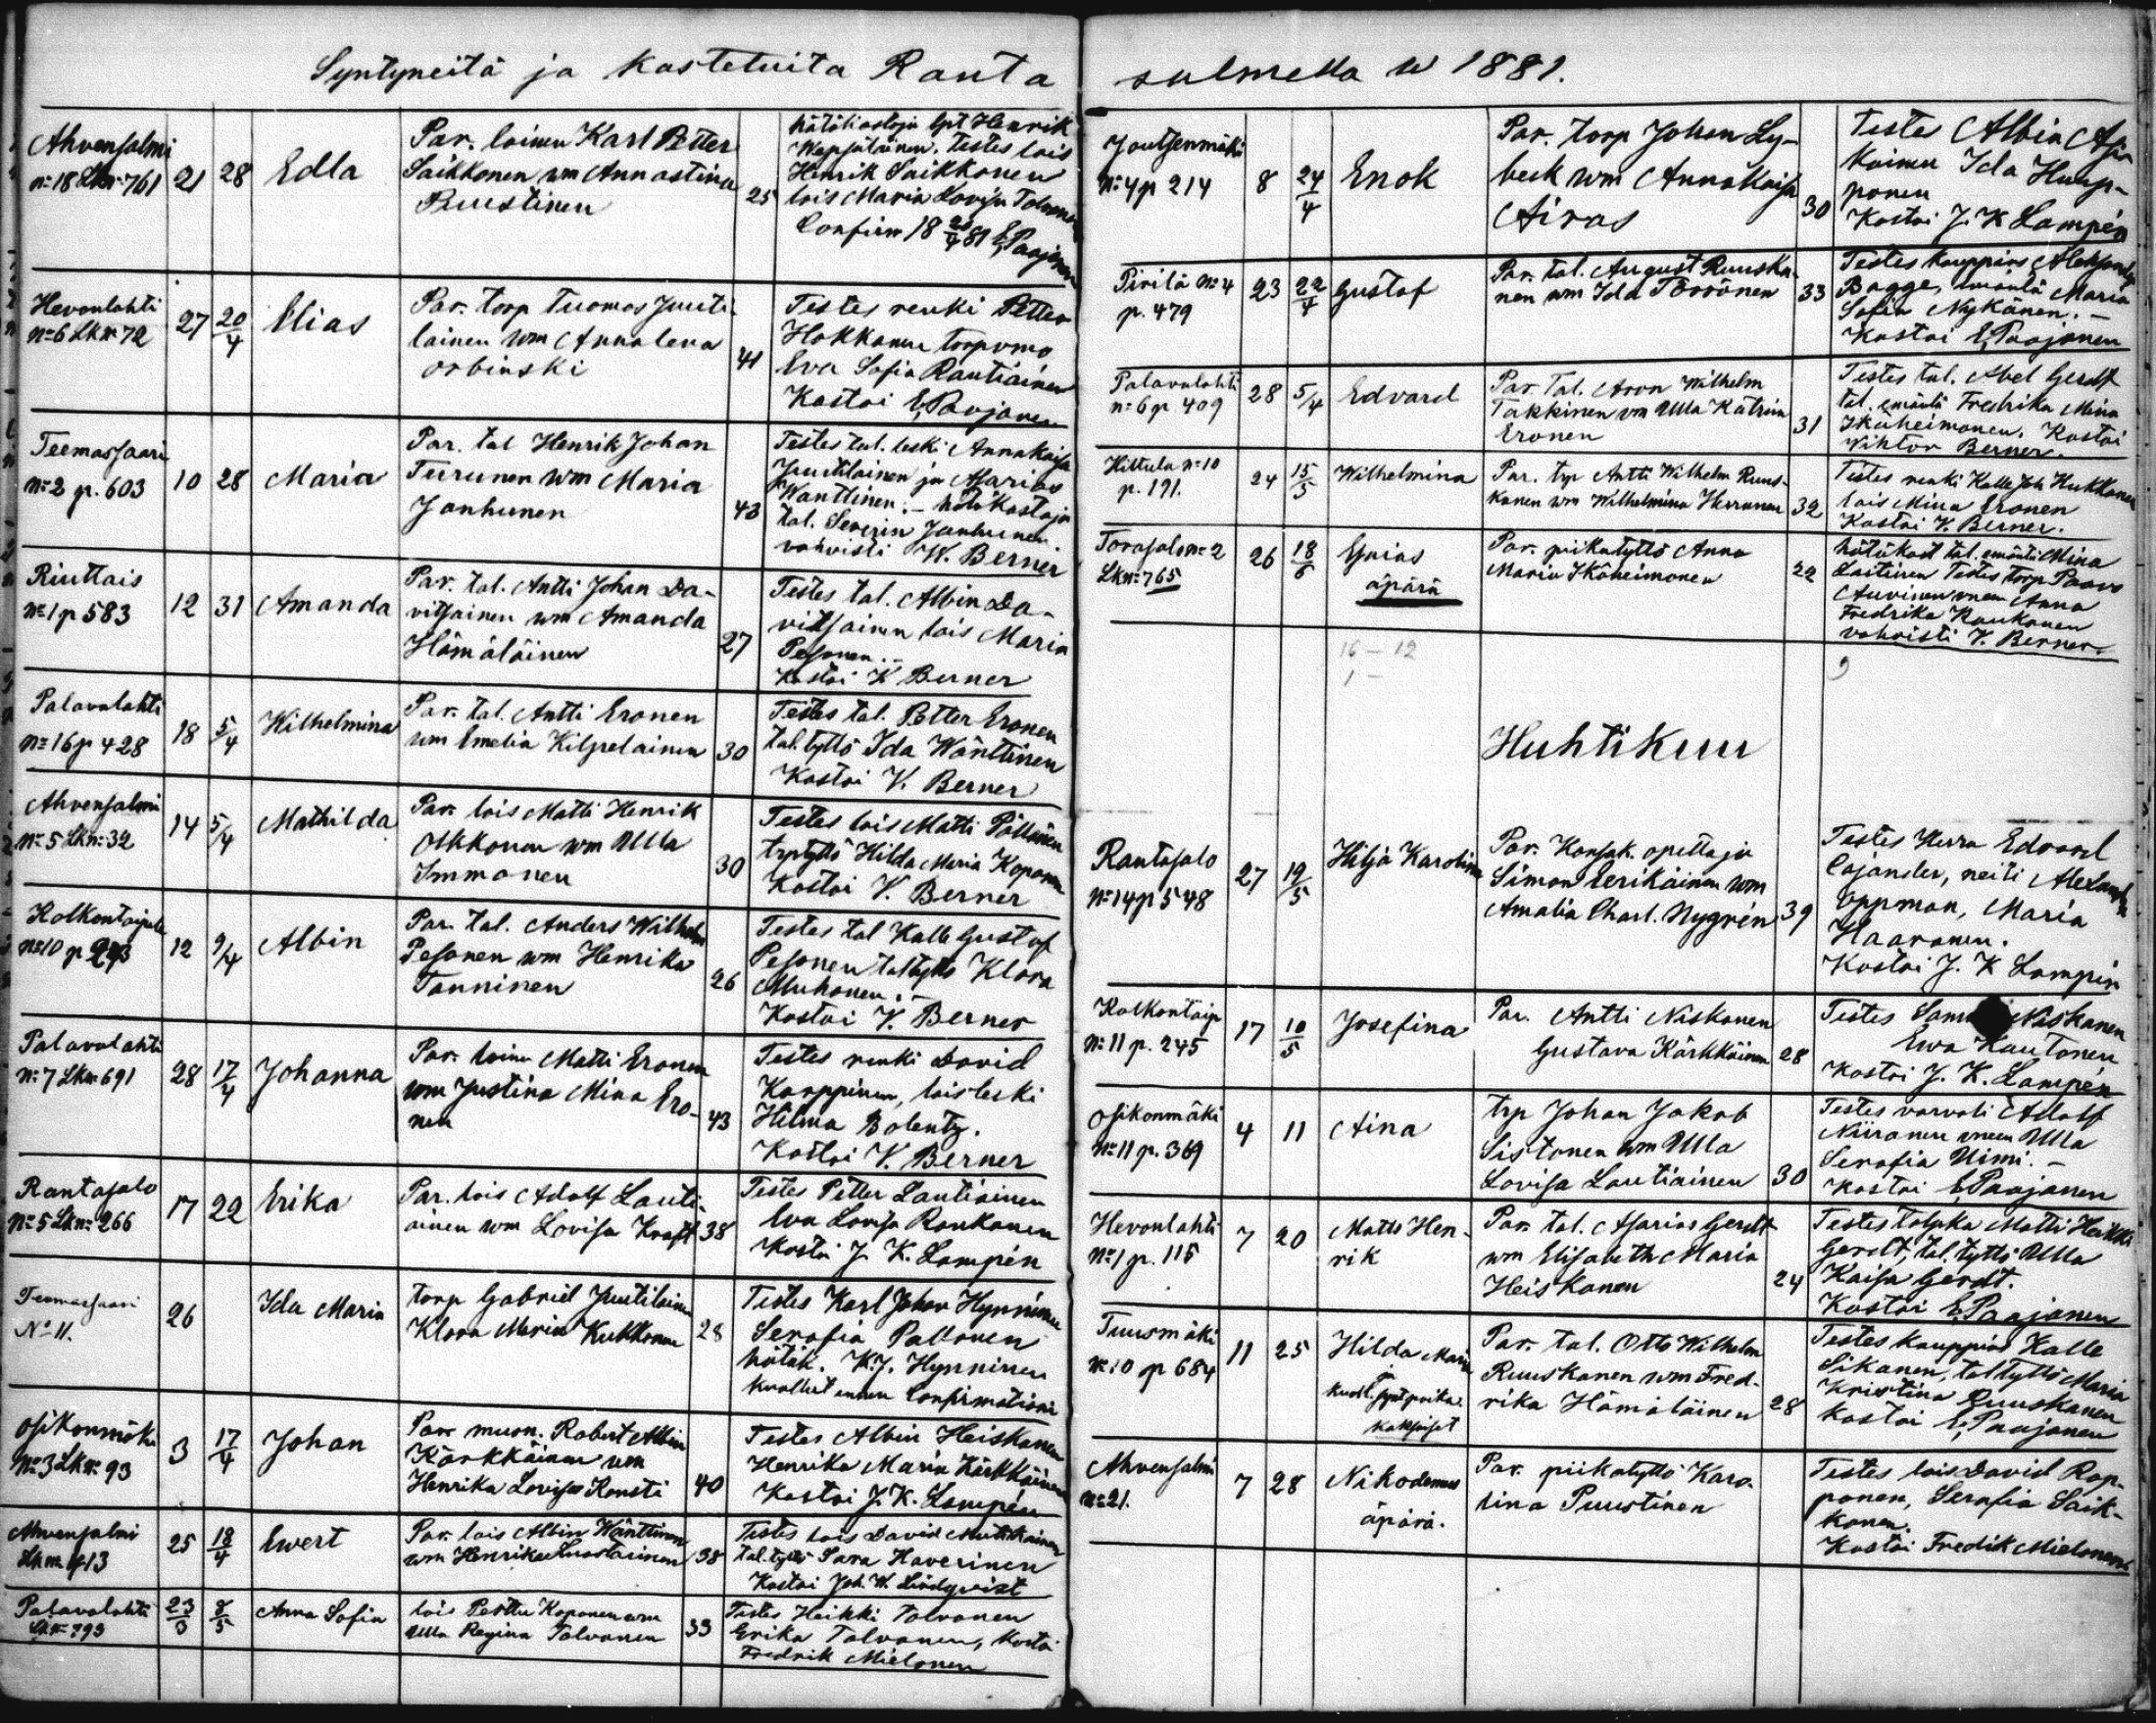 Syntyneitä ja kastetuita Ranta
Ahvensalmi
n:o 18 Lk n:o 761
21
28
Edla
Par. loinen Karl Petter
Saikkonen wm Annastina
Puustinen
25
hätäkastaja lpt Henrik
Testes lois
Henrik Saikkonen
lois Maria Lovisa Tolvanen
Confirm 18 20/4 81 E. Paajanen
Hevonlahti
n:o 6 Lk n:o 72
27
20/4
Elias
Par. torp Tuomas Juuti-
lainen wm Annalena
Orbinski
41
Testes renki Petter
Hakkanen torpvmo
Eva Sofia Rautiainen
Kastoi E. Paajanen
Teemassaari
n:o 2 p. 603
10
28
Maria
Par. tal Henrik Johan
Teirunen wm Maria
Janhunen
43
Testes tal. leski Annakaisa
Juutilainen ja Asarias
Wänttinen. – hätäkastaja
tal. Severin Janhunen.
vahvisti W. Berner
Riuttais
n:o 1 p 583
12
31
Amanda
Par. tal. Antti Johan Da-
vitsainen wm Amanda
Hämäläinen
27
Testes tal. Albin Da-
vitsainen lois Maria
Pesonen. –
Kastoi V. Berner
Palavalahti
n:o 16 p 428
18
5/4
Wilhelmina
Par. tal. Antti Eronen
wm Emelia Kilpeläinen
30
Testes tal. Petter Eronen
tal. tyttö Ida Wänttinen
Kastoi V. Berner
Ahvensalmi
n:o 5 Lk n:o 32
14
5/4
Mathilda
Par. lois Matti Henrik
Olkkonen wm Ulla
Immonen
30
Testes lois Matti Pöllänen
trptyttö Hilda Maria Koponen
Kastoi V. Berner
Kolkontaipale
n:o 10 p 243
12
9/4
Albin
Par. tal. Anders Wilhelm
Pesonen wm Henrika
Tanninen
26
Testes tal Kalle Gustaf
Pesonen taltyttö Klara
Muhonen. –
Kastoi V. Berner
Palavalahti
n:o 7 Lk n:o 691
28
17/4
Johanna
Par. loinen Matti Eronen
wm Justina Mina Ero-
nen
43
Testes renki David
Karppinen, lois leski
Hilma Bolentz.
Kastoi V. Berner
Rantasalo
n:o 5 Lk n:o 266
17
22
Erika
Par. lois Adolf Lauti-
ainen wm Lovisa Kraft
38
Testes Petter Lautiainen
Eva Lovisa Raukanen
Kastoi J. K. Lampén
Teemassaari
No 11.
26
Ida Maria
torp Gabriel Juutilainen
Klara Maria Kukkonen
28
Testes Karl Johan Hynninen
Serafia Paltanen
hätäk. K. J. Hynninen
kuollut ennen Confirmationi
Osikonmäki
n:o 3 Lk n:o 93
3
17/4
Johan
Par. muon. Robert Albin
Kärkkäinen wm
Henrika Lovisa Konsti
40
Testes Albin Heiskanen
Henrika Maria Kärkkäinen
Kastoi J. K. Lampén
Ahvensalmi
Lk n:o 413
25
18/4
Ewert
Par. lois Albin Wänttinen
wm Henrika Luostarinen
38
Testes lois David Mutikainen
tal. tyttö Sara Haverinen
Kastoi Joh. W. Lindqvist
Palavalahti
Lk n:o 793
23/3
8/5
Anna Sofia
lois Pekka Koponen wm
Ulla Regina Tolvanen
33
Testes Heikki Tolvanen
Erika Tolvanen, Kastoi
Fredrik Mielonen
salmella w 1881.
Joutsenmäki
n:o 4 p 214
8
24/4
Enok
Par. torp Johan Ly-
beck wm Anna Kaisa
Airas
30
Teste Albin Asi-
kainen Ida Hurp-
ponen
Kastoi J. K Lampén
Pirilä n:o 4
p. 479
23
22/4
Gustaf
Par. tal. August Ruuska-
nen wm Ida Törrönen
33
Testes kauppias Aleksander
Bagge, emäntä Maria
Sofia Nykänen. –
Kastoi E. Paajanen
Palavalahti
n:o 6 p 409
28
5/4
Edvard
Par. Tal. Aron Wilhelm
Takkinen vm Ulla Katrina
Eronen
31
Testes tal. Abel Gerdt
tal. emäntä Fredrika Mina
Ikäheimonen. Kastoi
Wiktor Berner.
Hiltula n:o 10
p. 191.
24
15/5
Wilhelmina
Par. trp Antti Wilhelm Ruus-
kanen wm Wilhelmina Hirvonen
32
Testes renki Kalle Joh Kukkonen
lois Mina Eronen
Kastoi V. Berner.
Torasalo n:o 2
Lk n:o 765
26
18/6
Gaias
äpärä
Par. piikatyttö Anna
Maria Ikäheimonen
22
hätäkast tal. emäntä Mina
Laitinen Testes torp Paavo
Auvinen vmon Anna
Fredrika Raukanen
vahvisti V. Berner.
16 – 12
1 –
9
Huhtikuu
Rantasalo
n:o 14 p 548
27
19/5
Hilja Karolina
Par. Kansak. opettaja
Simon Eerikäinen wm
Amalia Charl. Nygrén
39
Testes Herra Edvard
Cajander, neiti Alexandra
Oppman, Maria
Haaranen.
Kastoi J. K Lampén
Kolkontaip
n:o 11 p. 245
17
10/5
Josefina
Par. Antti Naskanen
Gustava Kärkkäinen
28
Testes Naskanen
Ewa Kautonen
Kastoi J. K. Lampén
Osikonmäki
n:o 11 p. 369
4
11
Aina
trp Johan Jakob
Sistonen wm Ulla
Lovisa Lautiainen
30
Testes vorvoti Adolf
Niiranen vmon Ulla
Serafia Niemi. –
Kastoi E. Paajanen
Hevonlahti
n:o 1 p. 115
7
20
Matts Hen-
rik
Par. tal. Asarias Gerdt
wm Elisabeth Maria
Heiskanen
24
Testes talpka Matti Heikki
Gerdt, tal. tyttö Ulla
Kaisa Gerdt.
Kastoi E. Paajanen
Tuusmäki
n:o 10 p 684
11
25
Hilda Maria
ja
kuoll. synt poika.
kaksoiset
Par. tal. Otto Wilhelm
Ruuskanen wm Fred-
rika Hämäläinen
28
Testes kauppias Kalle
Sikanen, tal tyttö Maria
Kristina Ruuskanen
Kastoi E. Paajanen
Ahvensalmi
n:o 21.
7
28
Nikodemus
äpärä.
Par. piikatyttö Karo-
lina Puustinen
Testes lois David Rop-
ponen, Serafia Saik-
konen.
Kastoi Fredik Mielonen